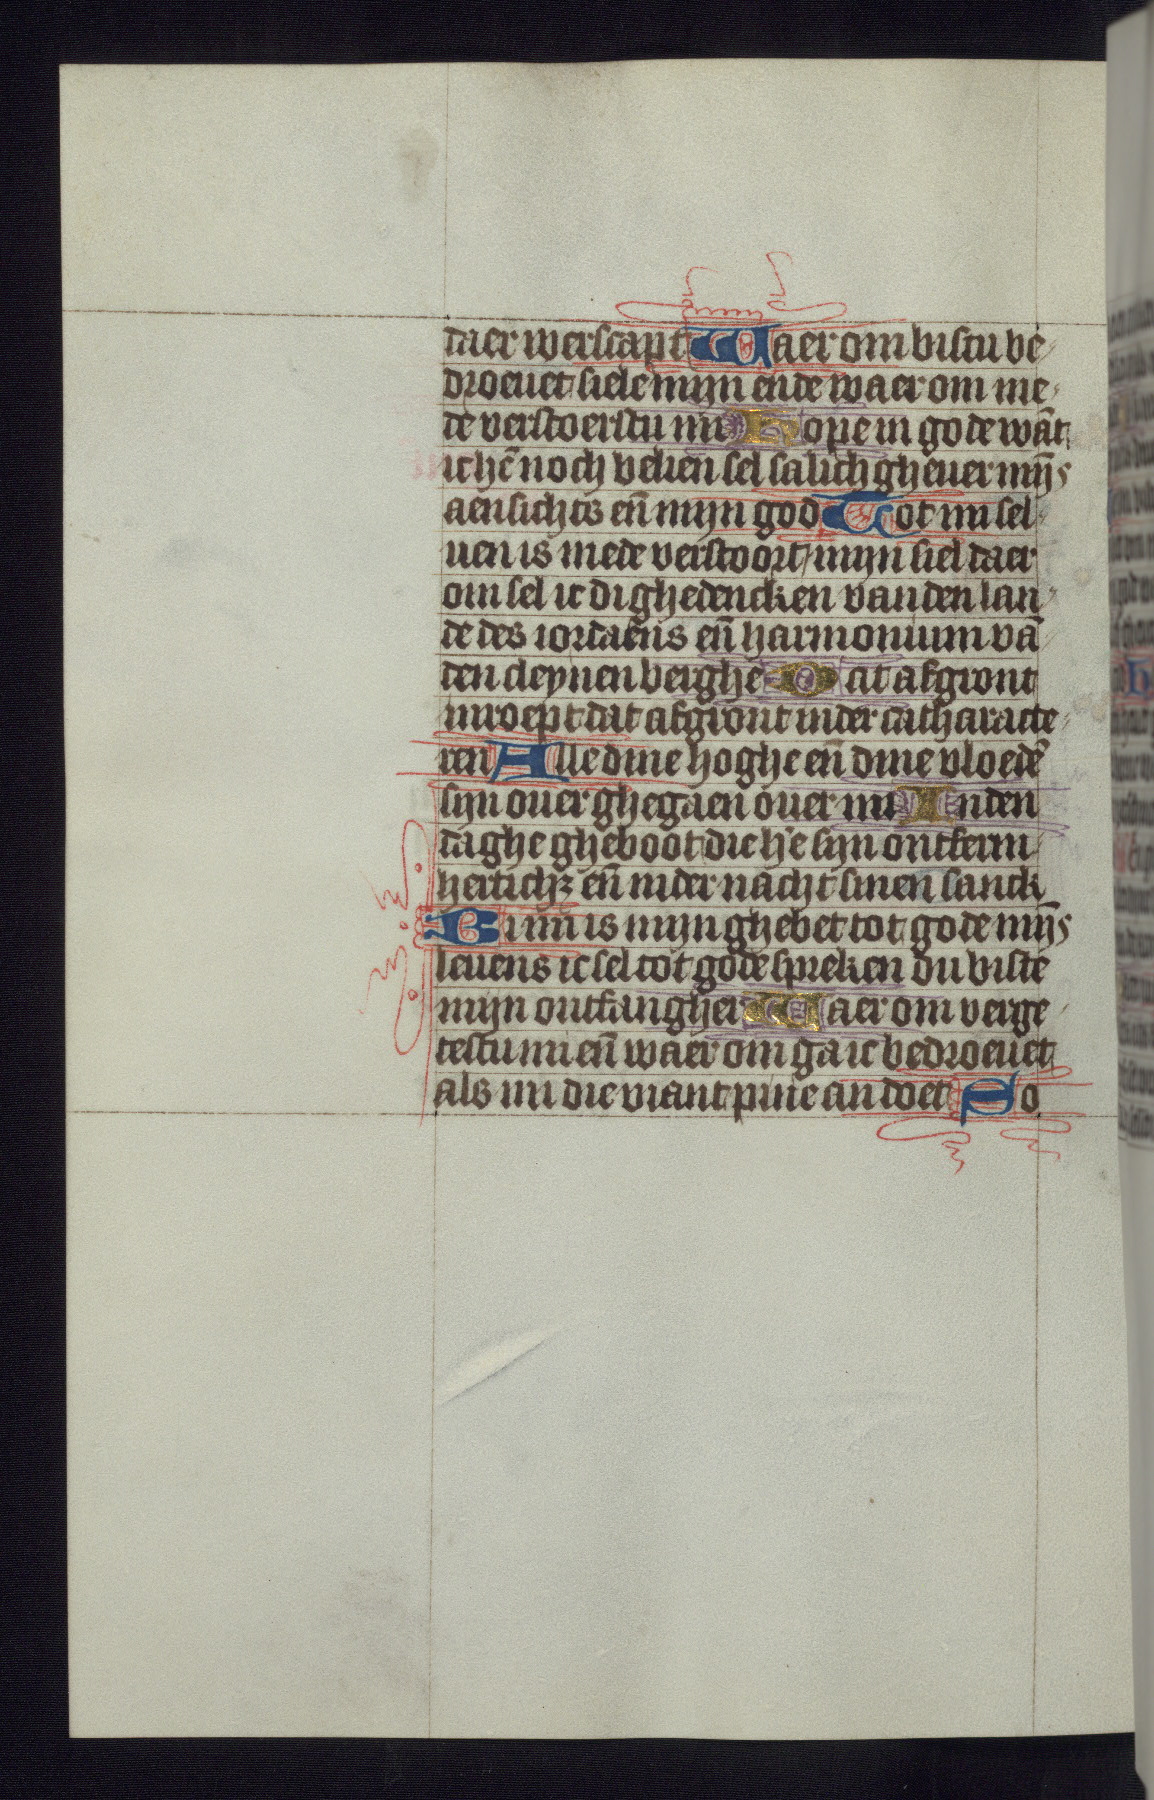 daer werscapt Waer om bistu be
droeuet siele mijn ende waer om me
de verstoerstu mi Hope in gode wāt
ic hē noch belien sel salich gheuer mijs
aensichts eñ mijn god Tot mi sel
uen is mede verstoort mijn siel daer
om sel ic di ghedencken vanden lan
de des iordaens eñ harmonium vā
den cleynen berghe Dat afgront
inroept dat afgront inder catharacte
ren Alle dine hoghe eñ dine vloedē
sijn ouer ghegaen ouer mi In den
daghe gheboot die he sijn ontferm
herticheꝫ eñ inder nacht sinen sanck
Bi mi is mijn ghebet tot gode mijs
leuens ic sel tot gode spreken du biste
mijn ontfangher Waer om verge
testu mi eñ waer om ga ic bedroeuet
als mi die viant pine an doet So